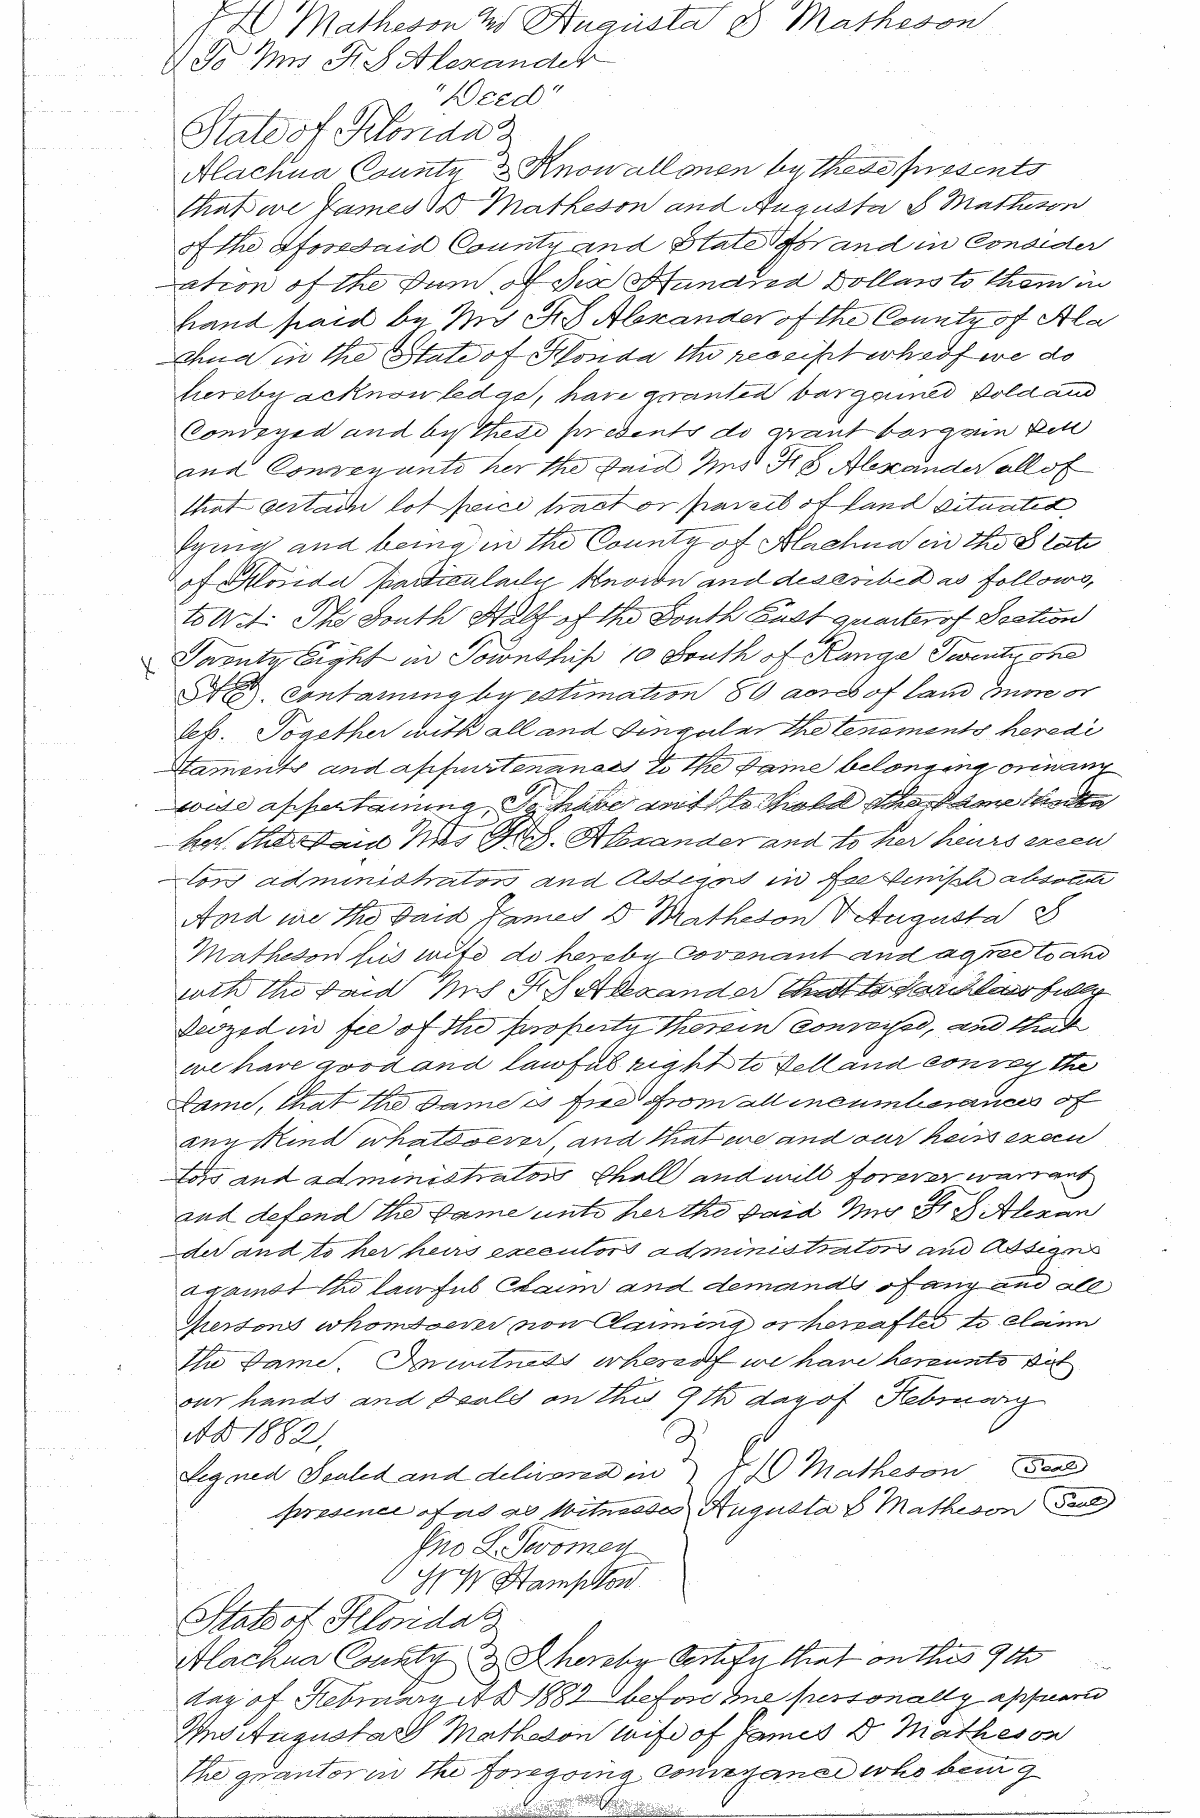 J D Matheson and Augusta S Matheson
To Mrs F. S Alexander
"Deed"
State of Florida
Alachua County Know all men by these presents
that we James D Matheson and Augusta S Matheson
of the aforesaid County and State for and in Consider
ation of the Sum of Six Hundred Dollars to them in
hand paid by Mrs F S Alexander of the County of Ala
chua in the State of Florida the receipt whereof we do
hereby acknowledge, have granted bargained sold and
Conveyed and by these presents do grant bargain sell
and Convey unto her the said Mrs F S Alexander all of
that certain lot peice tract or parcel of land situated
lying and being in the County of Alachua in the State
of Florida particularly known and described as follows,
to wit: The South Half of the South East quarter of Section
x Twenty Eight in Township 10 South of Range Twenty one
containing by estimation 80 acres of land more or
less. Together with all and Singular the tenements heredi
taments and appurtenances to the same belonging or in any
wise appertaining, To have and to hold the same unto
her the said Mrs F. S. Alexander and to her heirs execu
tors administrators and Assigns in fee simple absolute
And we the said James D Matheson & Augusta S
Matheson his wife do hereby Covenant and agree to and
with the said Mrs F S Alexander that lawfully
seized in fee of the property therein conveyed, and that
we have good and lawful right to sell and convey the
same, that the same is free from all incumberances of
any Kind whatsoever, and that we and our heirs execu
tors and administrators shall and will forever warrant
and defend the same unto her the said Mrs F. S Alexan
der and to her heirs executors administrators and Assigns
against the lawful Claim and demands of any and all
persons whomsoever now Claiming or hereafter to claim
the same. In witness whereof we have hereunto set
our hands and Seals on this 9th day of February
AD 1882.
Signed Sealed and delivered in J D Matheson Seal
presence of us as Witnesses Augusta S Matheson Seal
Jno L. Twomey
W W Hampton
State of Florida
Alachua County I hereby Certify that on this 9th
day of February AD 1882 before me personally appeared
Mrs Augusta S Matheson wife of James D Matheson
the grantor in the foregoing conveyance who being